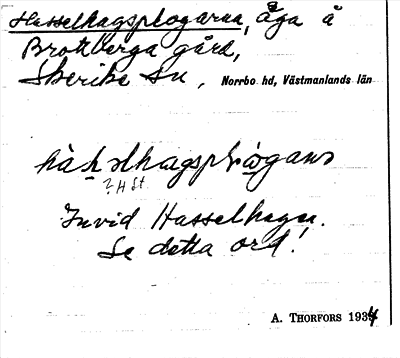 Hasselhagsskogarna, äga å
Brottberga gård,
Skerike sn, Norrbo hd, Västmanlands län
Invid Hasselhagen.
Se detta ord!
A. THORFORS 1934